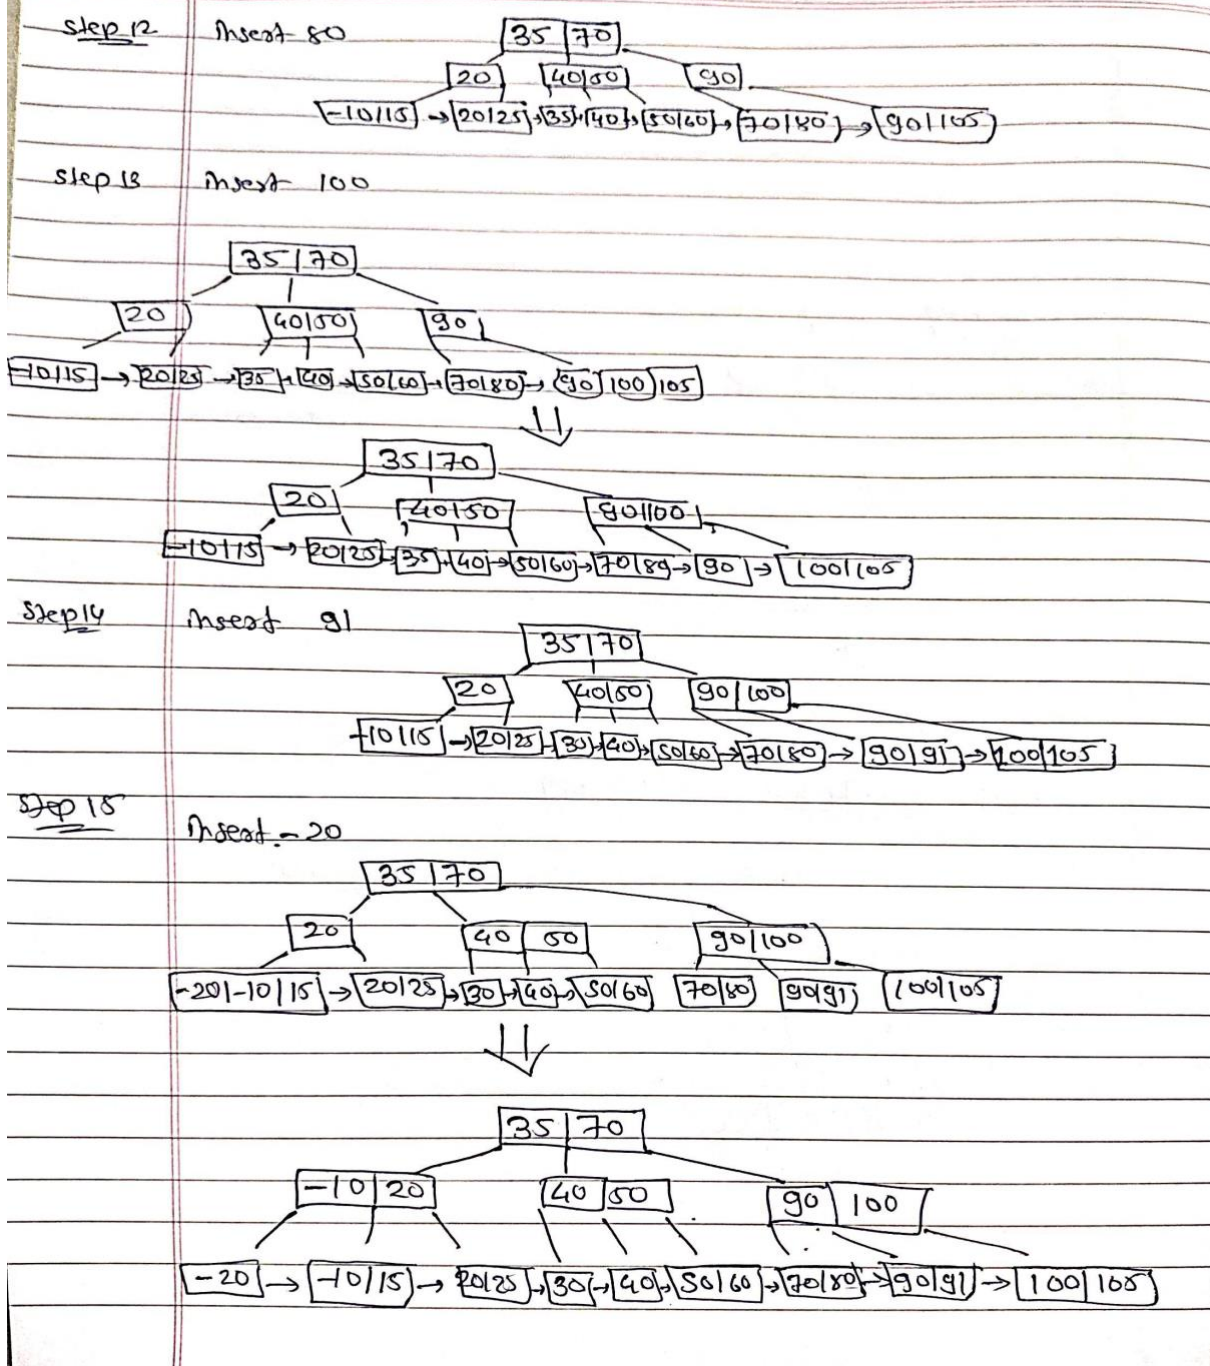 Step 12 Insert 80
35 | 70
20 40|50 90
-10|15 → 20|25 → 35 → 40 → 50|60 → 70|80 → 90|105
Step 13 insert 100
35 | 70
20 40|50 90
-10|15 → 20|25 → 35 → 40 → 50|60 → 70|80 → 90|100|105
⇓
35|70
20 40|50 90|100
-10|15 → 20|25 → 35 → 40 → 50|60 → 70|80 → 90 → 100|105
Step 14 insert 91
35|70
20 40|50 90|100
-10|15 → 20|25 → 30 → 40 → 50|60 → 70|80 → 90|91 → 100|105
Step 15
Insert -20
35|70
20 40|50 90|100
-20|-10|15 → 20|25 → 30 → 40 → 50|60 70|80 90|91 100|105
⇓
35|70
-10|20 40|50 90|100
-20 → -10|15 → 20|25 → 30 → 40 → 50|60 → 70|80 → 90|91 → 100|105